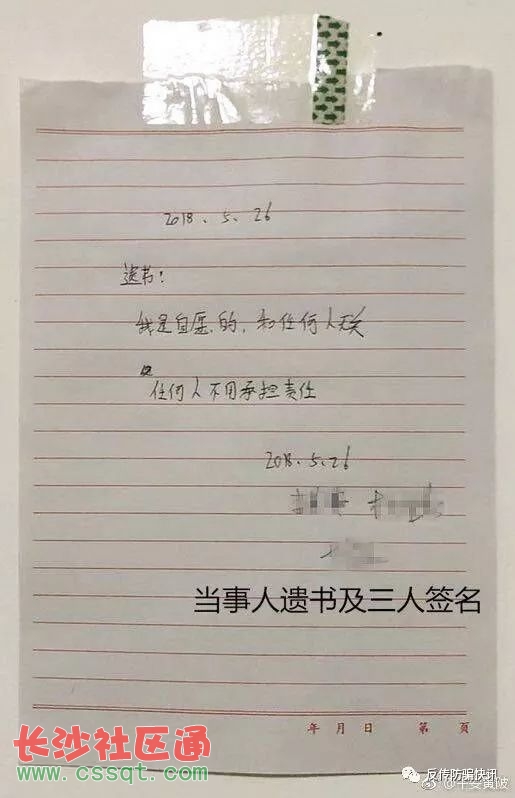 2018.5.26
遗书:
我是自愿的,和任何人无关
任何人不用承担责任
2018.5.26
当事人遗书及三人签名
年 月 日 第 页
长沙社区通
www.cssqt.com
反传防骗快讯